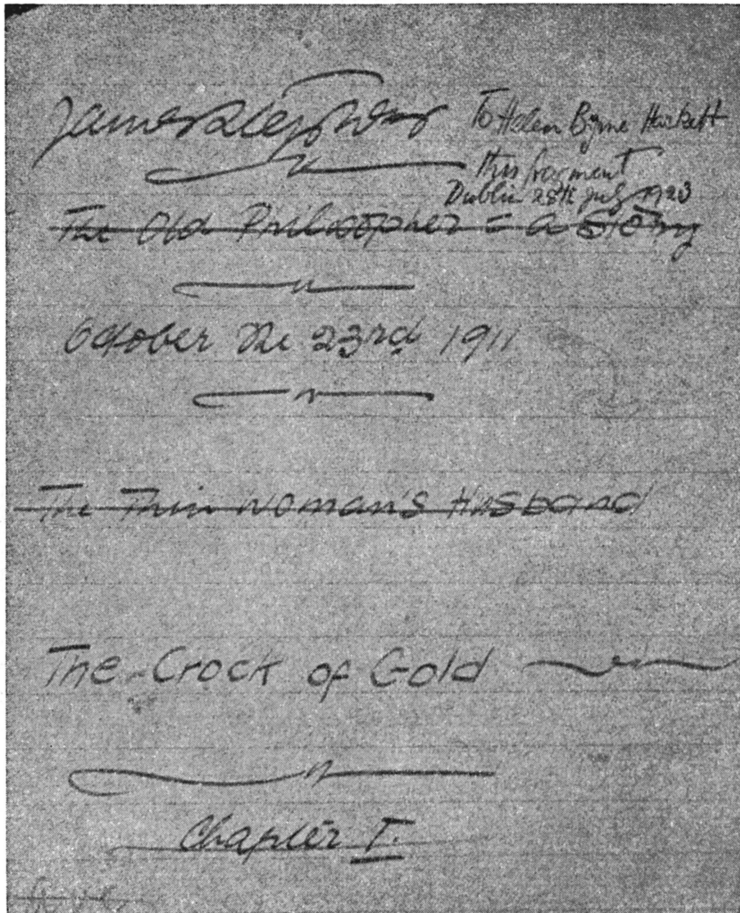 James Stephens
To Helen Byrne Hackett
this fragment
Dublin 28th july 1923
The Old Philosopher = a story
October the 23rd 1911
The Thin Woman's Husband
The Crock of Gold
Chapter I.